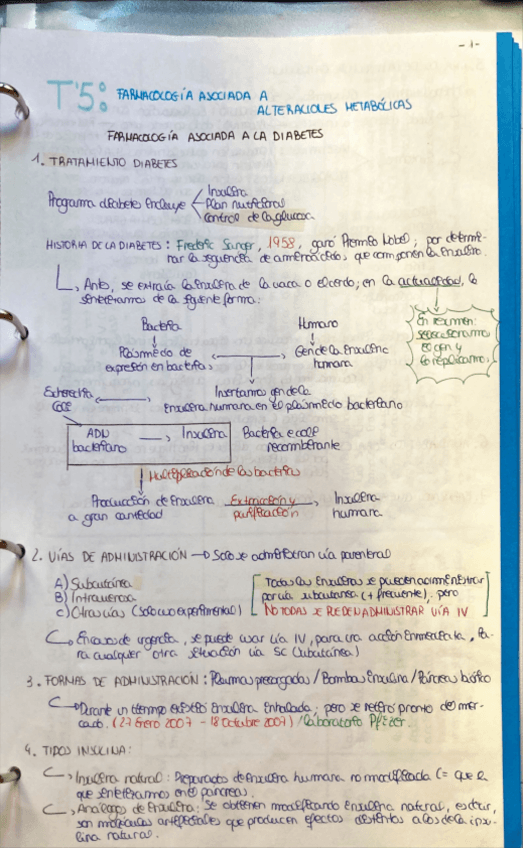 -1-
T'5: FARMACOLOGÍA ASOCIADA A
ALTERACIONES METABÓLICAS
FARMACOLOGÍA ASOCIADA A LA DIABETES
1. TRATAMIENTO DIABETES
Insulina
Programa diabetes incluye Plan nutricional
Control de la glucosa
HISTORIA DE LA DIABETES: Frederic Sanger, 1958, ganó Premio Nobel; por determi-
nar la secuencia de aminoácidos, que componen la insulina.
Antes, se extraía la insulina de la vaca o el cerdo; en la actualidad, la
sintetizamos de la siguiente forma:
Bacteria Humano
En resumen:
seleccionamos
el gen y
lo replicamos
Plásmido de Gen de la insulina
expresión en bacterias humana
Insertamos gen de la
insulina humana en el plásmido bacteriano
Escherichia
Coli
ADN → Insulina
bacteriano
Bacteria e coli
recombinante
Multiplicación de las bacterias
Producción de insulina Extracción y Insulina
a gran cantidad purificación humana
2. VÍAS DE ADMINISTRACIÓN → Solo se administran vía parenteral
A) Subcutánea
B) Intravenosa
C) Otras vías (solo uso experimental)
Todas las insulinas se pueden administrar
por vía subcutánea (+ frecuente), pero
NO TODAS SE PUEDEN ADMINISTRAR VÍA IV
En caso de urgencia, se puede usar vía IV, para una acción inmediata, pa-
ra cualquier otra situación vía SC (subcutánea)
3. FORMAS DE ADMINISTRACIÓN: Plumas precargadas / Bombas insulina / Páncreas biónico
Durante un tiempo existió insulina inhalada; pero se retiró pronto del mer-
cado. (27 Enero 2007 - 18 Octubre 2007) / Laboratorio Pfizer.
4. TIPOS INSULINA:
Insulina natural: Preparado de insulina humana no modificada (= que la
que sintetizamos en el páncreas.
Análogos de insulina: Se obtienen modificando insulina natural, es decir,
son moléculas artificiales que producen efectos distintos a los de la insu-
lina natural.